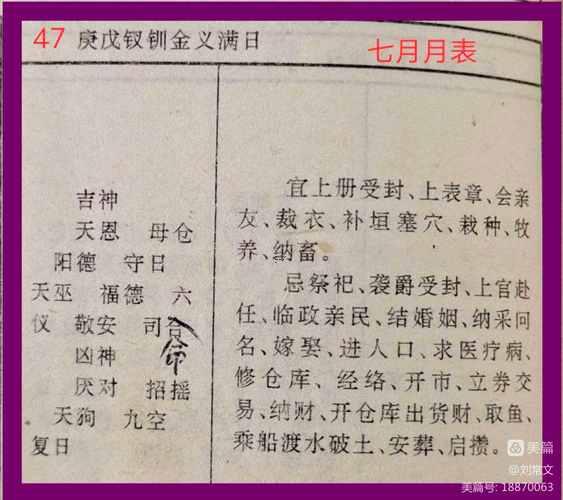 47 庚戊钗钏金义满日
七月月表
吉神
天恩 母仓
阳德 守日
天巫 福德 六
仪 敬安 司合
命
凶神
厌对 招摇
天狗 九空
复日
宜上册受封、上表章、会亲
友、裁衣、补垣塞穴、栽种、牧
养、纳畜。
忌祭祀、袭爵受封、上官赴
任、临政亲民、结婚姻、纳采问
名、嫁娶、进人口、求医疗病、
修仓库、经络、开市、立券交
易、纳财、开仓库出货财、取鱼、
乘船渡水破土、安葬、启攒。
美篇
@刘常文
美篇号: 18870063